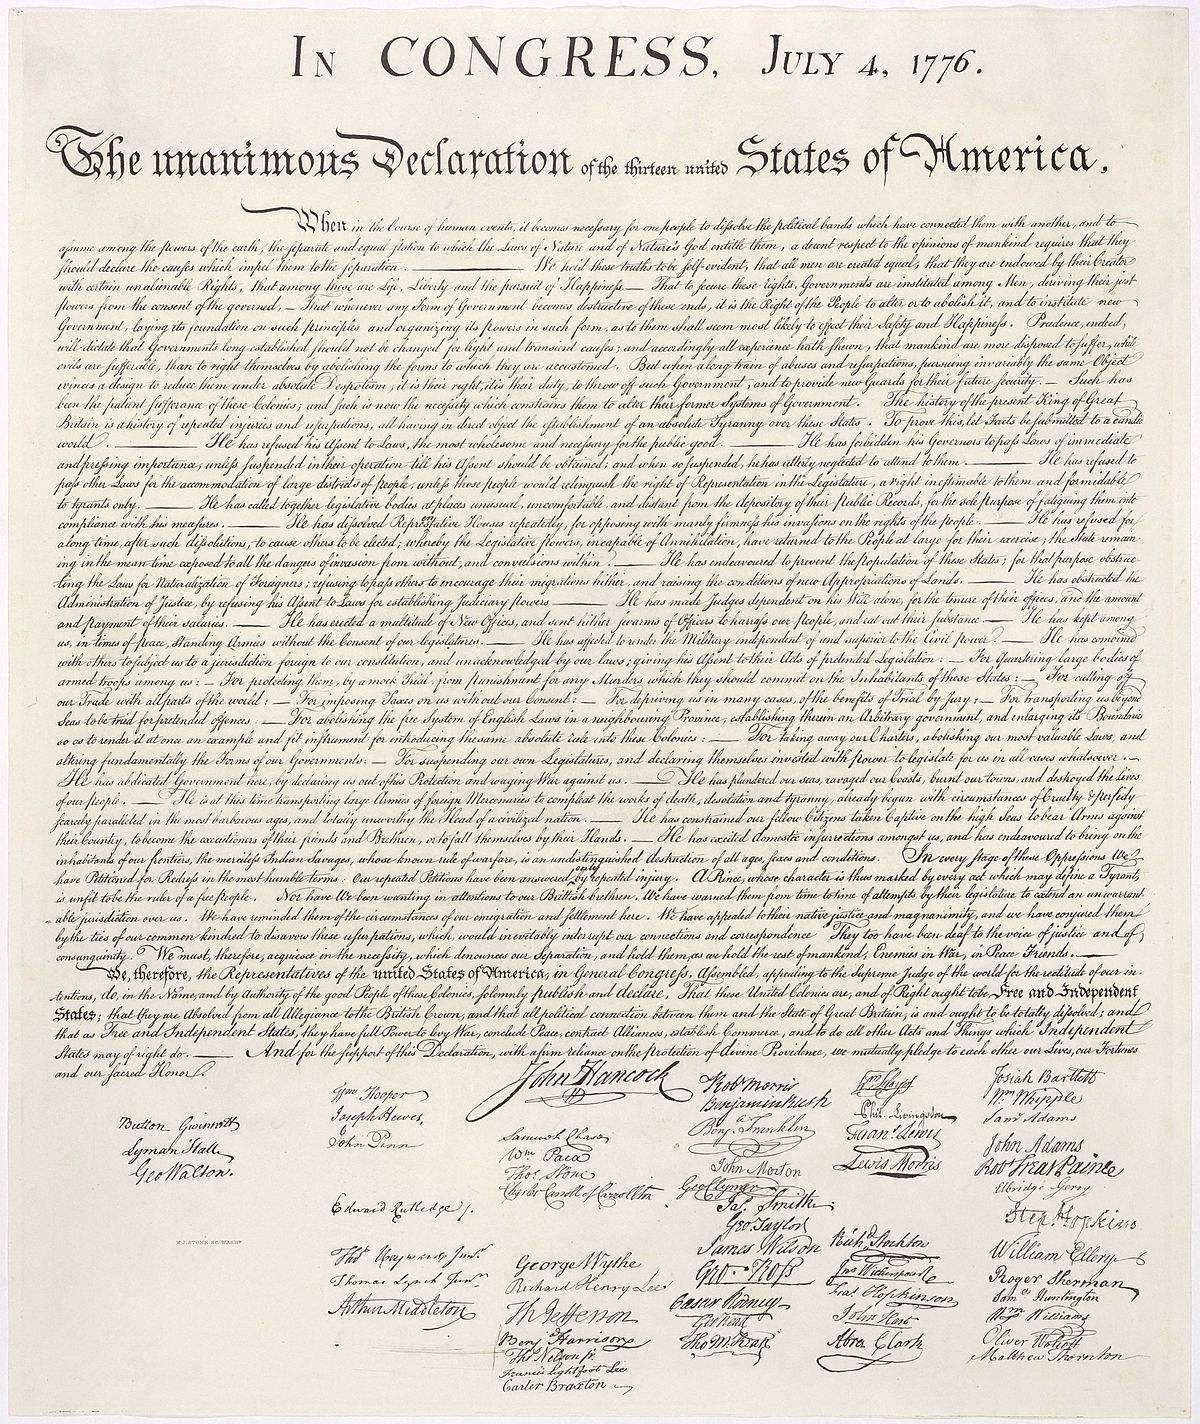 In CONGRESS, July 4, 1776.
The unanimous Declaration of the thirteen united States of America,
When in the Course of human events, it becomes necessary for one people to dissolve the political bands which have connected them with another, and to
assume among the powers of the earth, the separate and equal station to which the Laws of Nature and of Nature's God entitle them, a decent respect to the opinions of mankind requires that they
should declare the causes which impel them to the separation. — We hold these truths to be self-evident, that all men are created equal, that they are endowed by their Creator
with certain unalienable Rights, that among these are Life, Liberty and the pursuit of Happiness. — That to secure these rights, Governments are instituted among Men, deriving their just
powers from the consent of the governed, — That whenever any Form of Government becomes destructive of these ends, it is the Right of the People to alter or to abolish it, and to institute new
Government, laying its foundation on such principles and organizing its powers in such form, as to them shall seem most likely to effect their Safety and Happiness. Prudence, indeed,
will dictate that Governments long established should not be changed for light and transient causes; and accordingly all experience hath shewn, that mankind are more disposed to suffer, while
evils are sufferable, than to right themselves by abolishing the forms to which they are accustomed. But when a long train of abuses and usurpations, pursuing invariably the same Object
evinces a design to reduce them under absolute Despotism, it is their right, it is their duty, to throw off such Government, and to provide new Guards for their future security. — Such has
been the patient sufferance of these Colonies; and such is now the necessity which constrains them to alter their former Systems of Government. The history of the present King of Great
Britain is a history of repeated injuries and usurpations, all having in direct object the establishment of an absolute Tyranny over these States. To prove this, let Facts be submitted to a candid
world. — He has refused his Assent to Laws, the most wholesome and necessary for the public good. — He has forbidden his Governors to pass Laws of immediate
and pressing importance, unless suspended in their operation till his Assent should be obtained; and when so suspended, he has utterly neglected to attend to them. — He has refused to
pass other Laws for the accommodation of large districts of people, unless those people would relinquish the right of Representation in the Legislature, a right inestimable to them and formidable
to tyrants only. — He has called together legislative bodies at places unusual, uncomfortable, and distant from the depository of their Public Records, for the sole purpose of fatiguing them into
compliance with his measures. — He has dissolved Representative Houses repeatedly, for opposing with manly firmness his invasions on the rights of the people. — He has refused for
a long time, after such dissolutions, to cause others to be elected; whereby the Legislative powers, incapable of Annihilation, have returned to the People at large for their exercise; the State remain
ing in the mean time exposed to all the dangers of invasion from without, and convulsions within. — He has endeavoured to prevent the population of these States; for that purpose obstruc
ting the Laws for Naturalization of Foreigners; refusing to pass others to encourage their migrations hither, and raising the conditions of new Appropriations of Lands. — He has obstructed the
Administration of Justice, by refusing his Assent to Laws for establishing Judiciary powers — He has made Judges dependent on his Will alone, for the tenure of their offices, and the amount
and payment of their salaries. — He has erected a multitude of New Offices, and sent hither swarms of Officers to harrass our people, and eat out their substance — He has kept among
us, in times of peace, Standing Armies without the Consent of our legislatures. — He has affected to render the Military independent of and superior to the Civil power. — He has combined
with others to subject us to a jurisdiction foreign to our constitution, and unacknowledged by our laws; giving his Assent to their Acts of pretended Legislation: — For Quartering large bodies of
armed troops among us: — For protecting them, by a mock Trial, from punishment for any Murders which they should commit on the Inhabitants of these States: — For cutting off
our Trade with all parts of the world: — For imposing Taxes on us without our Consent: — For depriving us in many cases, of the benefits of Trial by Jury: — For transporting us beyond
Seas to be tried for pretended offences — For abolishing the free System of English Laws in a neighbouring Province, establishing therein an Arbitrary government, and enlarging its Boundaries
so as to render it at once an example and fit instrument for introducing the same absolute rule into these Colonies: — For taking away our Charters, abolishing our most valuable Laws, and
altering fundamentally the Forms of our Governments: — For suspending our own Legislatures, and declaring themselves invested with power to legislate for us in all cases whatsoever. —
He has abdicated Government here, by declaring us out of his Protection and waging War against us. — He has plundered our seas, ravaged our Coasts, burnt our towns, and destroyed the lives
of our people. — He is at this time transporting large Armies of foreign Mercenaries to compleat the works of death, desolation and tyranny, already begun with circumstances of Cruelty & perfidy
scarcely paralleled in the most barbarous ages, and totally unworthy the Head of a civilized nation. — He has constrained our fellow Citizens taken Captive on the high Seas to bear Arms against
their Country, to become the executioners of their friends and Brethren, or to fall themselves by their Hands. — He has excited domestic insurrections amongst us, and has endeavoured to bring on the
inhabitants of our frontiers, the merciless Indian Savages, whose known rule of warfare, is an undistinguished destruction of all ages, sexes and conditions. In every stage of these Oppressions We
have Petitioned for Redress in the most humble terms: Our repeated Petitions have been answered only by repeated injury. A Prince, whose character is thus marked by every act which may define a Tyrant,
is unfit to be the ruler of a free people. Nor have We been wanting in attentions to our Brittish brethren. We have warned them from time to time of attempts by their legislature to extend an unwarrant-
able jurisdiction over us. We have reminded them of the circumstances of our emigration and settlement here. We have appealed to their native justice and magnanimity, and we have conjured them
by the ties of our common kindred to disavow these usurpations, which, would inevitably interrupt our connections and correspondence They too have been deaf to the voice of justice and of
consanguinity. We must, therefore, acquiesce in the necessity, which denounces our Separation, and hold them, as we hold the rest of mankind, Enemies in War, in Peace Friends. —
We, therefore, the Representatives of the united States of America, in General Congress, Assembled, appealing to the Supreme Judge of the world for the rectitude of our in-
tentions, do, in the Name, and by Authority of the good People of these Colonies, solemnly publish and declare, That these United Colonies are, and of Right ought to be Free and Independent
States; that they are Absolved from all Allegiance to the British Crown, and that all political connection between them and the State of Great Britain, is and ought to be totally dissolved; and
that as Free and Independent States, they have full Power to levy War, conclude Peace, contract Alliances, establish Commerce, and to do all other Acts and Things which Independent
States may of right do. — And for the support of this Declaration, with a firm reliance on the protection of divine Providence, we mutually pledge to each other our Lives, our Fortunes
and our sacred Honor.
Button Gwinnett
Lyman Hall
Geo Walton.
W. J. STONE SC. WASHN
Wm Hooper
Joseph Hewes,
John Penn
Edward Rutledge /.
Thos Heyward Junr.
Thomas Lynch Junr.
Arthur Middleton
John Hancock
Samuel Chase
Wm Paca
Thos Stone
Charles Carroll of Carrollton
George Wythe
Richard Henry Lee
Th Jefferson
Benj Harrison
Thos Nelson jr.
Francis Lightfoot Lee
Carter Braxton
Robt Morris
Benjamin Rush
Benj. Franklin
John Morton
Geo Clymer
Jas. Smith
Geo. Taylor
James Wilson
Geo. Ross
Caesar Rodney
Geo Read
Tho M:Kean
Wm Floyd
Phil. Livingston
Frans. Lewis
Lewis Morris
Richd. Stockton
Jno Witherspoon
Fras. Hopkinson
John Hart
Abra Clark
Josiah Bartlett
Wm Whipple
Saml Adams
John Adams
Robt Treat Paine
Elbridge Gerry
Step. Hopkins
William Ellery
Roger Sherman
Saml Huntington
Wm Williams
Oliver Wolcott
Matthew Thornton